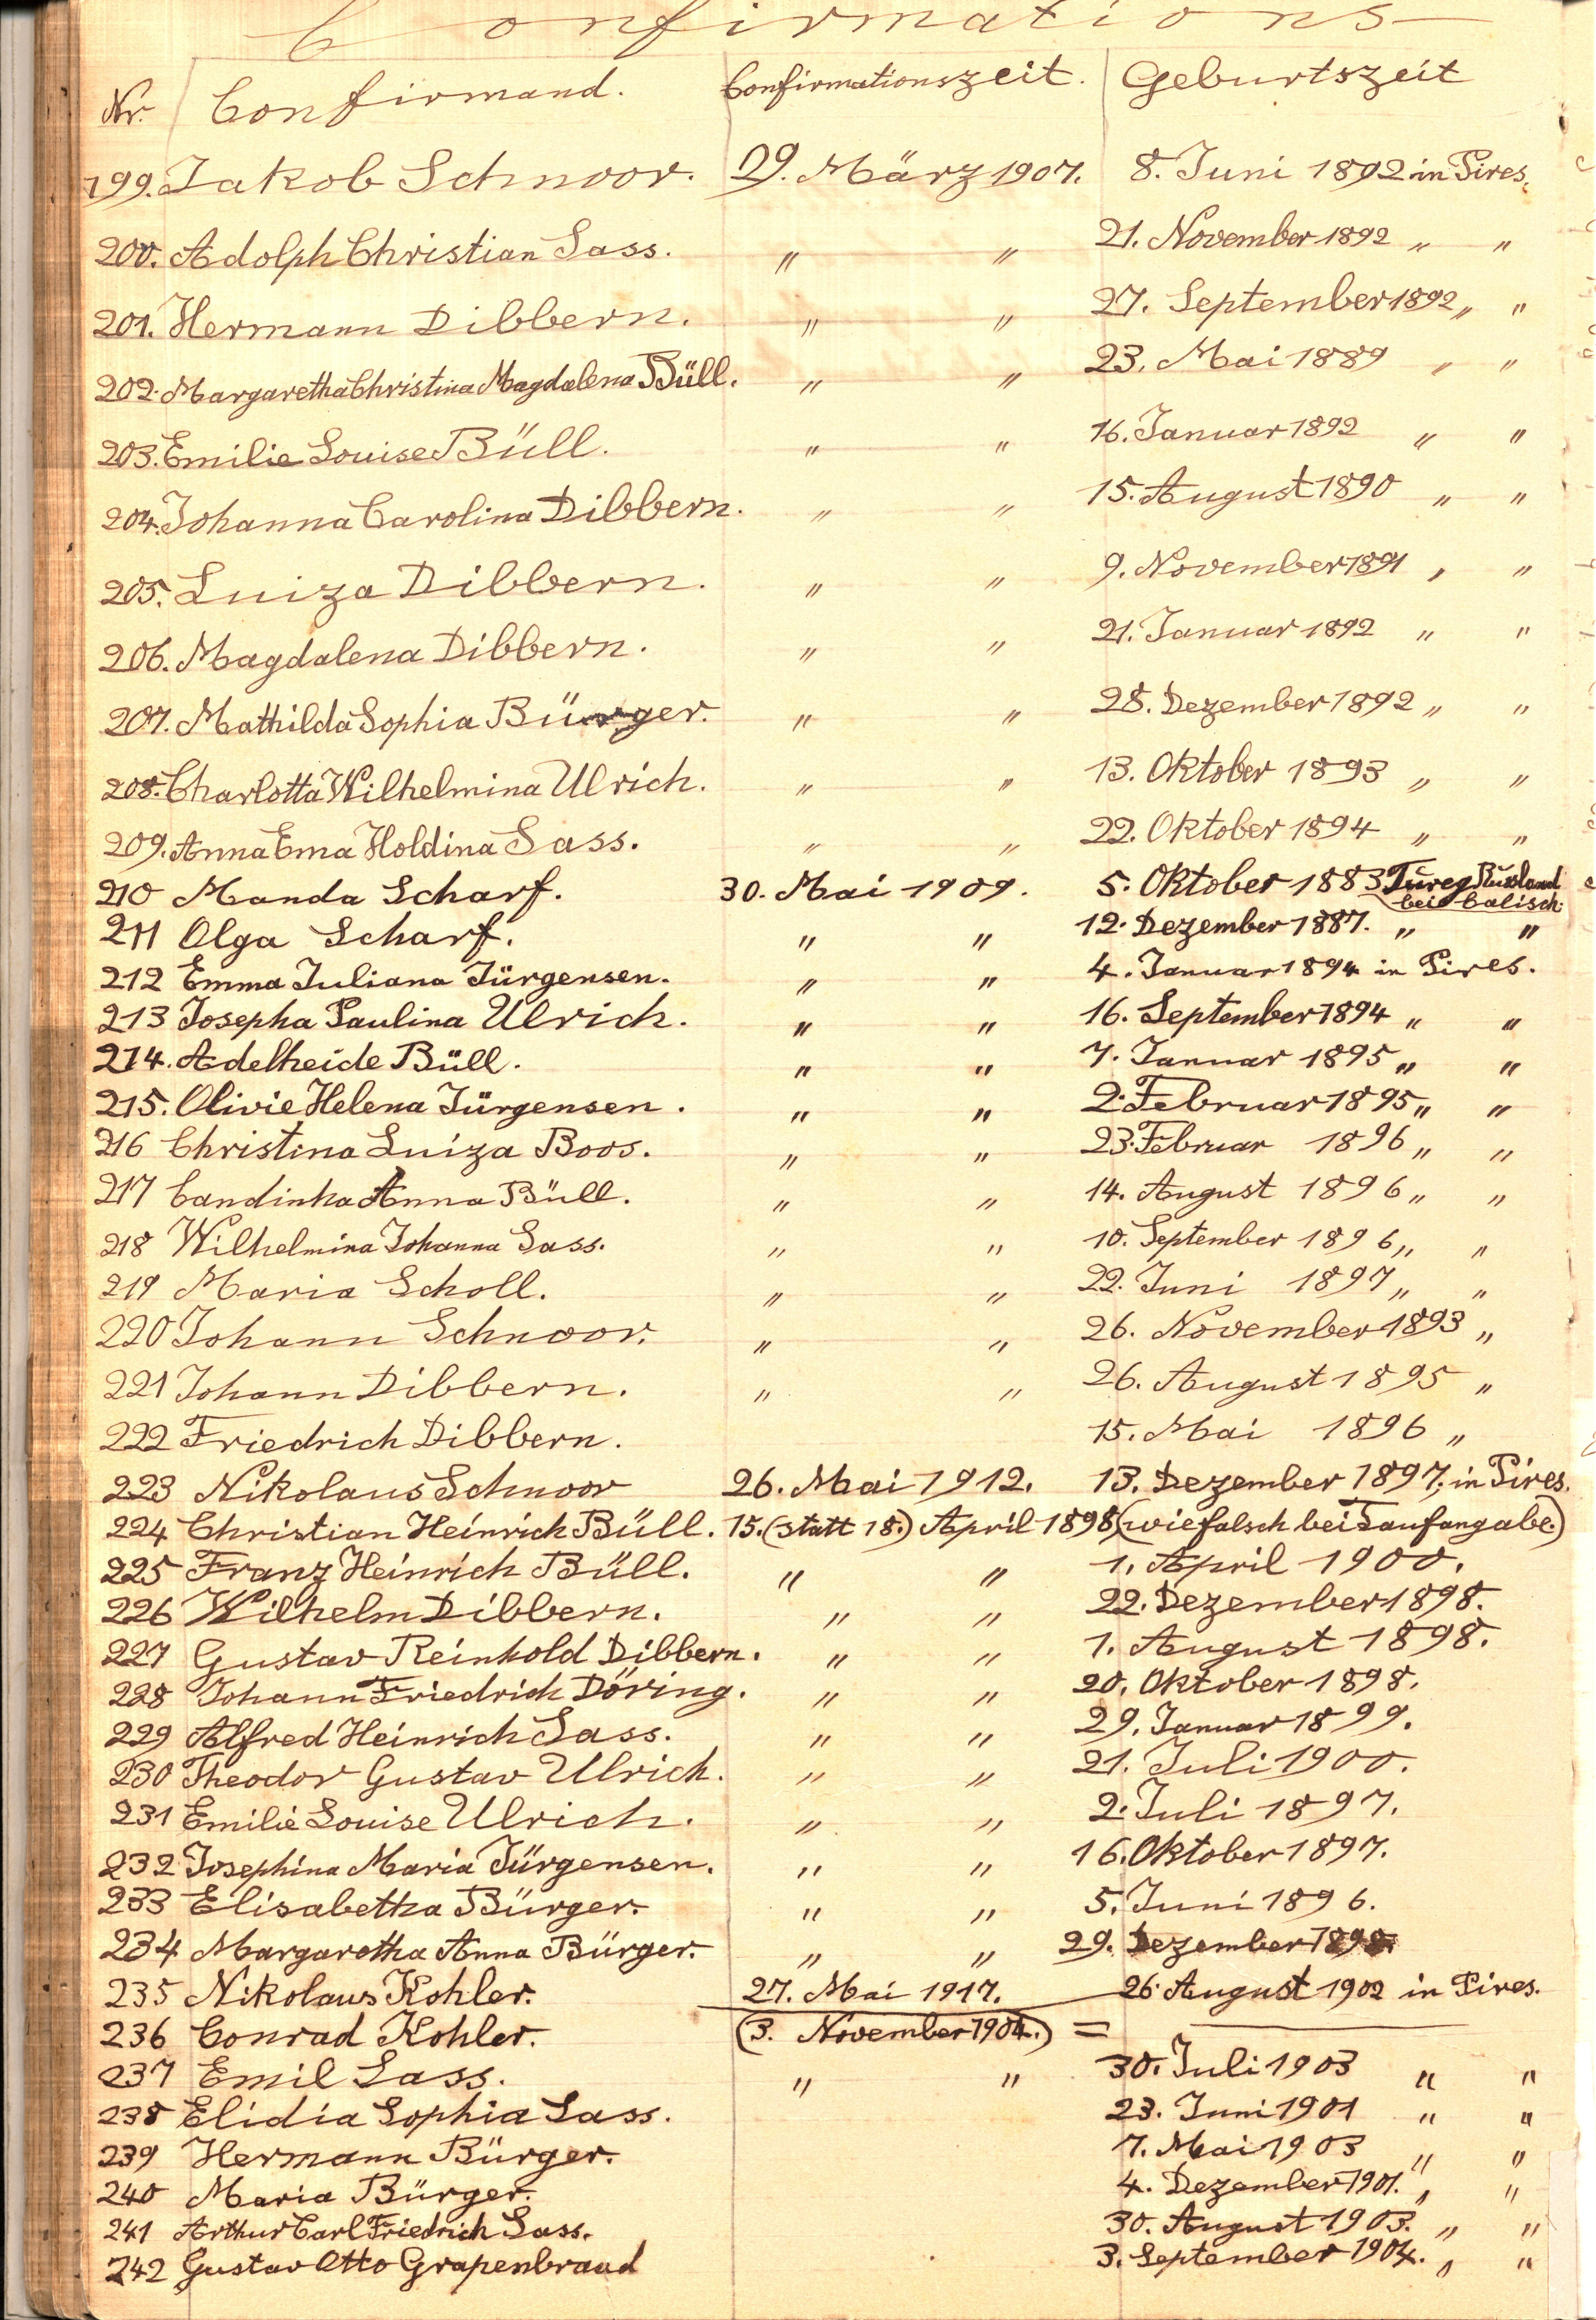 Confirmations
Nr. Confirmand. Confirmationszeit. Geburtszeit
199. Jakob Schnoor. 29. März 1907. 8. Juni 1892 in Pires.
200. Adolph Christian Sass. " " 21. November 1892 " "
201. Hermann Dibbern. " " 27. September 1892 " "
202. Margaretha Christina Magdalena Büll. " " 23. Mai 1889 " "
203. Emilie Louise Büll. " " 16. Januar 1892 " "
204. Johanna Carolina Dibbern. " " 15. August 1890 " "
205. Luiza Dibbern. " " 9. November 1891 " "
206. Magdalena Dibbern. " " 21. Januar 1892 " "
207. Mathilda Sophia Bürger. " " 28. Dezember 1892 " "
208. Charlotta Wilhelmina Ulrich. " " 13. Oktober 1893 " "
209. Anna Ema Holdina Sass. " " 22. Oktober 1894 " "
210 Manda Scharf. 30. Mai 1909. 5. Oktober 1883 Tureg Russland
bei Calisch.
211 Olga Scharf. " " 12. Dezember 1887. " "
212 Emma Juliana Jürgensen. " " 4. Januar 1894 in Pires.
213 Josepha Paulina Ulrich. " " 16. September 1894 " "
214. Adelheide Büll. " " 7. Januar 1895 " "
215. Olivie Helena Jürgensen. " " 2. Februar 1895 " "
216 Christina Luiza Boos. " " 23. Februar 1896 " "
217 Candinha Anna Büll. " " 14. August 1896 " "
218 Wilhelmina Johanna Sass. " " 10. September 1896 " "
219 Maria Scholl. " " 22. Juni 1897 " "
220 Johann Schnoor. " " 26. November 1893 "
221 Johann Dibbern. " " 26. August 1895 "
222 Friedrich Dibbern. 15. Mai 1896 "
223 Nikolaus Schnoor 26. Mai 1912. 13. Dezember 1897. in Pires.
224 Christian Heinrich Büll. 15. (statt 18.) April 1898 (wie falsch bei Taufangabe.)
225 Franz Heinrich Büll. " " 1. April 1900.
226 Wilhelm Dibbern. " " 22. Dezember 1898.
227 Gustav Reinhold Dibbern. " " 1. August 1898.
228 Johann Friedrich Döring. " " 20. Oktober 1898.
229 Alfred Heinrich Sass. " " 29. Januar 1899.
230 Theodor Gustav Ulrich. " " 21. Juli 1900.
231 Emilie Louise Ulrich. " " 2. Juli 1897.
232 Josephina Maria Jürgensen. " " 16. Oktober 1897.
233 Elisabetha Bürger. " " 5. Juni 1896.
234 Margaretha Anna Bürger. " " 29. Dezember
235 Nikolaus Kohler. 27. Mai 1917. 26. August 1902 in Pires.
236 Conrad Kohler. (3. November 1904.) =
237 Emil Sass. " " 30. Juli 1903 " "
238 Elidia Sophia Sass. 23. Juni 1901 " "
239 Hermann Bürger. 7. Mai 1903 " "
240 Maria Bürger. 4. Dezember 1901. " "
241 Arthur Carl Friedrich Sass. 30. August 1903. " "
242 Gustav Otto Grapenbrand 3. September 1904. " "